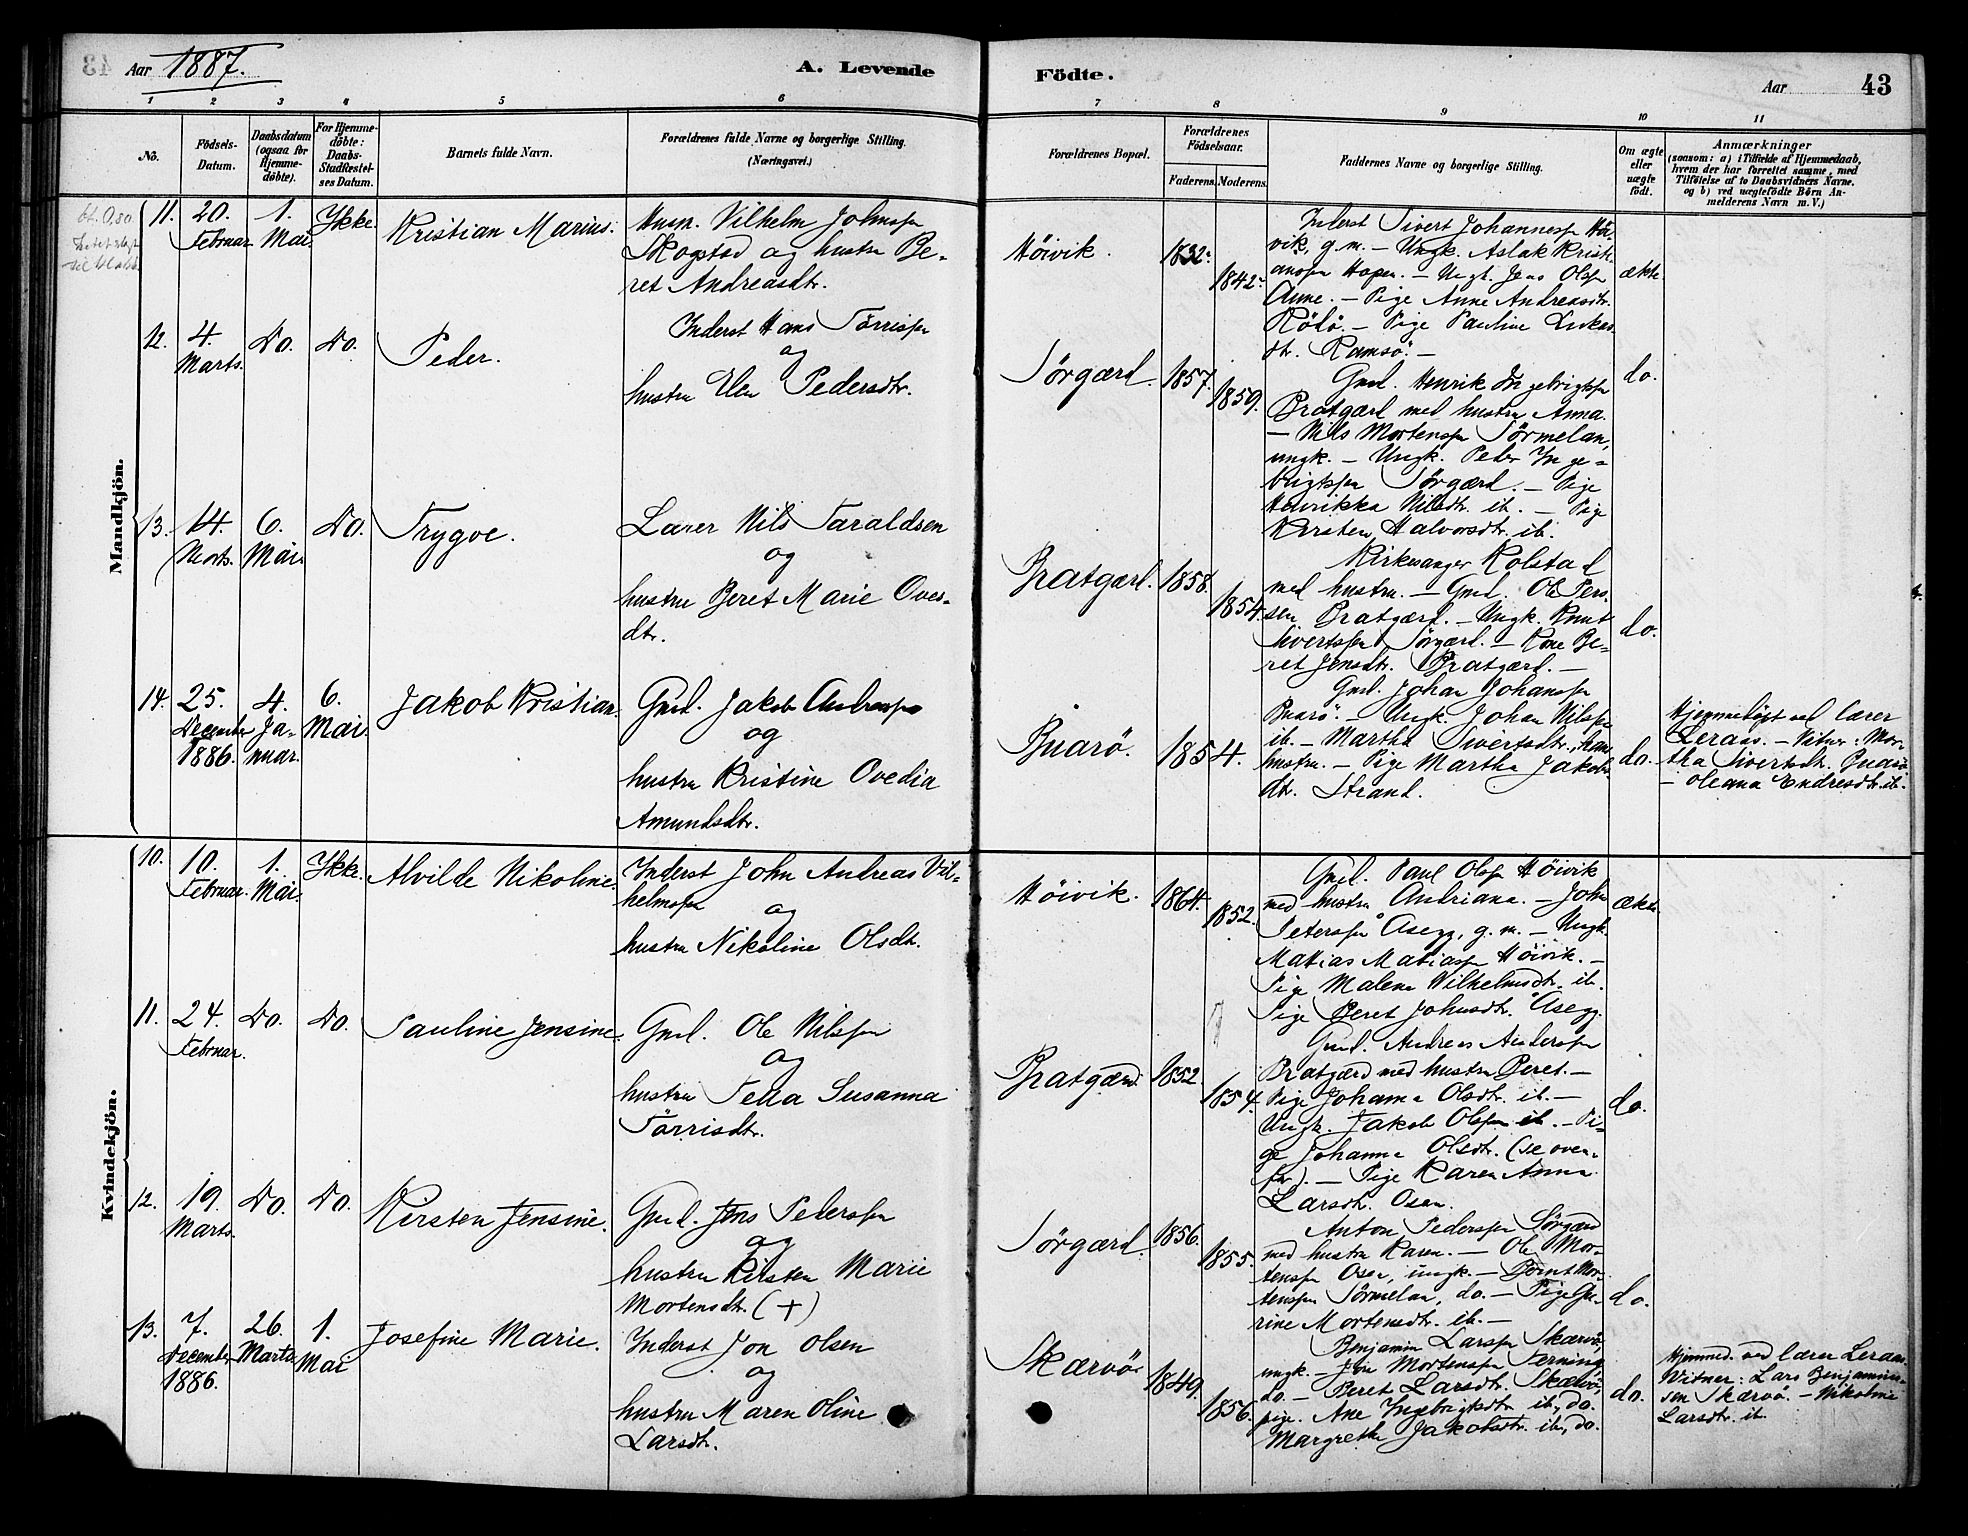 Aar 1887.
A. Levende
Födte.
Aar
43
1 2 3 4 5 6 7 8 9 10 11
No.
Födsels-
Datum.
Daabsdatum
(ogsaa for
Hjemme-
döbte).
For Hjemme-
döbte:
Daabs-
Stadfæstel-
ses Datum.
Barnets fulde Navn.
Forældrenes fulde Navne og borgerlige Stilling.
(Næringsvei.)
Forældrenes Bopæl.
Forældrenes
Födselsaar.
Faderens. Moderens.
Faddernes Navne og borgerlige Stilling.
Om ægte
eller
uægte
födt.
Anmærkninger
(saasom: a) i Tilfælde af Hjemmedaab,
hvem der har forrettet samme, med
Tilföielse af to Daabsvidners Navne,
og b) ved uægtefödte Börn An-
melderens Navn m. V.)
Mandkjön.
11.
20.
Februar
1.
Mai
Ikke
Kristian Marius.
Husm. Vilhelm Johnsen
Skogstad og hustru Be-
ret Andreasdtr.
Höivik.
1832.
1842.
Inderst Sivert Johannessen Höi-
vik, g.m. – Ungk. Aslak Kristi-
ansen Hopen. – Ungk. Jens Olsen
Aune. – Pige Anne Andreasdtr.
Rödö. – Pige Pauline Lukas-
dtr. Ramsö. –
ækte
12.
4.
Marts.
Do.
Do.
Peder.
Inderst Hans Törrissen
og
hustru Elen Pedersdtr.
Sörgærd.
1857.
1859.
Gmd. Henrik Ingebrigtsen
Bratgærd med hustru Anna.
– Nils Mortensen Sörmelan,
ungk. – Ungk. Peder Inge-
brigtsen Sörgærd. – Pige
Henrikka Nilsdtr. ib. – Pige
Kirsten Halvorsdtr. ib.
do.
13.
14.
Marts.
6.
Mai
Do.
Trygve.
Lærer Nils Taraldsen
og
hustru Beret Marie Oves-
dtr.
Bratgærd.
1858.
1854.
Kirkesanger Kolstad
med hustru. – Gmd. Ole Pers-
sen Bratgærd. – Ungk. Knut
Sivertsen Sörgærd. – Kone Be-
ret Jensdtr. Bratgærd. –
do.
14.
25.
December
1886.
4.
Ja-
nuar.
6.
Mai
Jakob Kristian.
Gmd. Jakob Andreassen
og
hustru Kristine Ovedia
Amundsdtr.
Buarö.
1854.
Gmd. Johan Johansen
Buarö. – Ungk. Johan Nilsen
ib. – Martha Sivertsdtr., hans
hustru. – Pige Martha Jakobs-
dtr. Strand.
do.
Hjemmedöbt ved lærer
Leraas. – Vitner: Mar-
tha Sivertsdtr. Buarö
– Oleana Endresdtr. ib.
Kvindekjön.
10.
10.
Februar.
1.
Mai.
Ikke.
Alvilde Nikoline.
Inderst John Andreas Vil-
helmsen og
hustru Nikoline Olsdt.
Höivik.
1864.
1852.
Gmd. Paul Olsen Höivik
med hustru Andriana. – John
Petersen Aasegg, g.m. – Ungk.
Matias Matiassen Höivik. –
Pige Malena Vilhelmsdtr. ib.
Pige Beret Johnsdtr. Aasegg.
ækte.
11.
24.
Februar.
Do.
Do.
Pauline Jensine.
Gmd. Ole Nilssen
og
hustru Tella Susanna
Törrisdtr.
Bratgærd
1852.
1854.
Gmd. Andreas Anderssen
Bratgærd med hustru Beret. –
Pige Johanna Olsdtr. ib. –
Ungk. Jakob Olsen ib. – Pi-
ge Johanna Olsdtr. (se oven-
for). – Pige Karen Anna
Larsdtr. Osen.
do.
12.
19.
Marts.
Do.
Do.
Kirsten Jensine.
Gmd. Jens Pedersen
og
hustru Kirsten Marie
Mortensdtr. (+)
Sörgærd.
1856.
1855.
Anton Pedersen Sörgærd
med hustru Karen. – Ole Mor-
tensen Osen, ungk. – Bernt Mor-
tensen Sörmelan, do. – Pige Gu-
rine Mortensdtr. ib. –
do.
13.
7.
December
1886.
26.
Marts
1.
Mai
Josefine Marie.
Inderst Jon Olsen
og
hustru Maren Oline
Larsdtr.
Skærvö
1849.
1856.
Benjamin Larsen Skærvö,
ungk. – Jon Mortensen Terning,
do. – Beret Larsdtr. Skærvö,
pige. Ane Ingebrigtsdtr. ib., do.
Margrethe Jakobsdtr. ib., do.
do.
Hjemmed. ved lærer Leraas.
Vitner: Lars Benjamin-
sen Skærvö. – Nikoline
Larsdtr. ib.